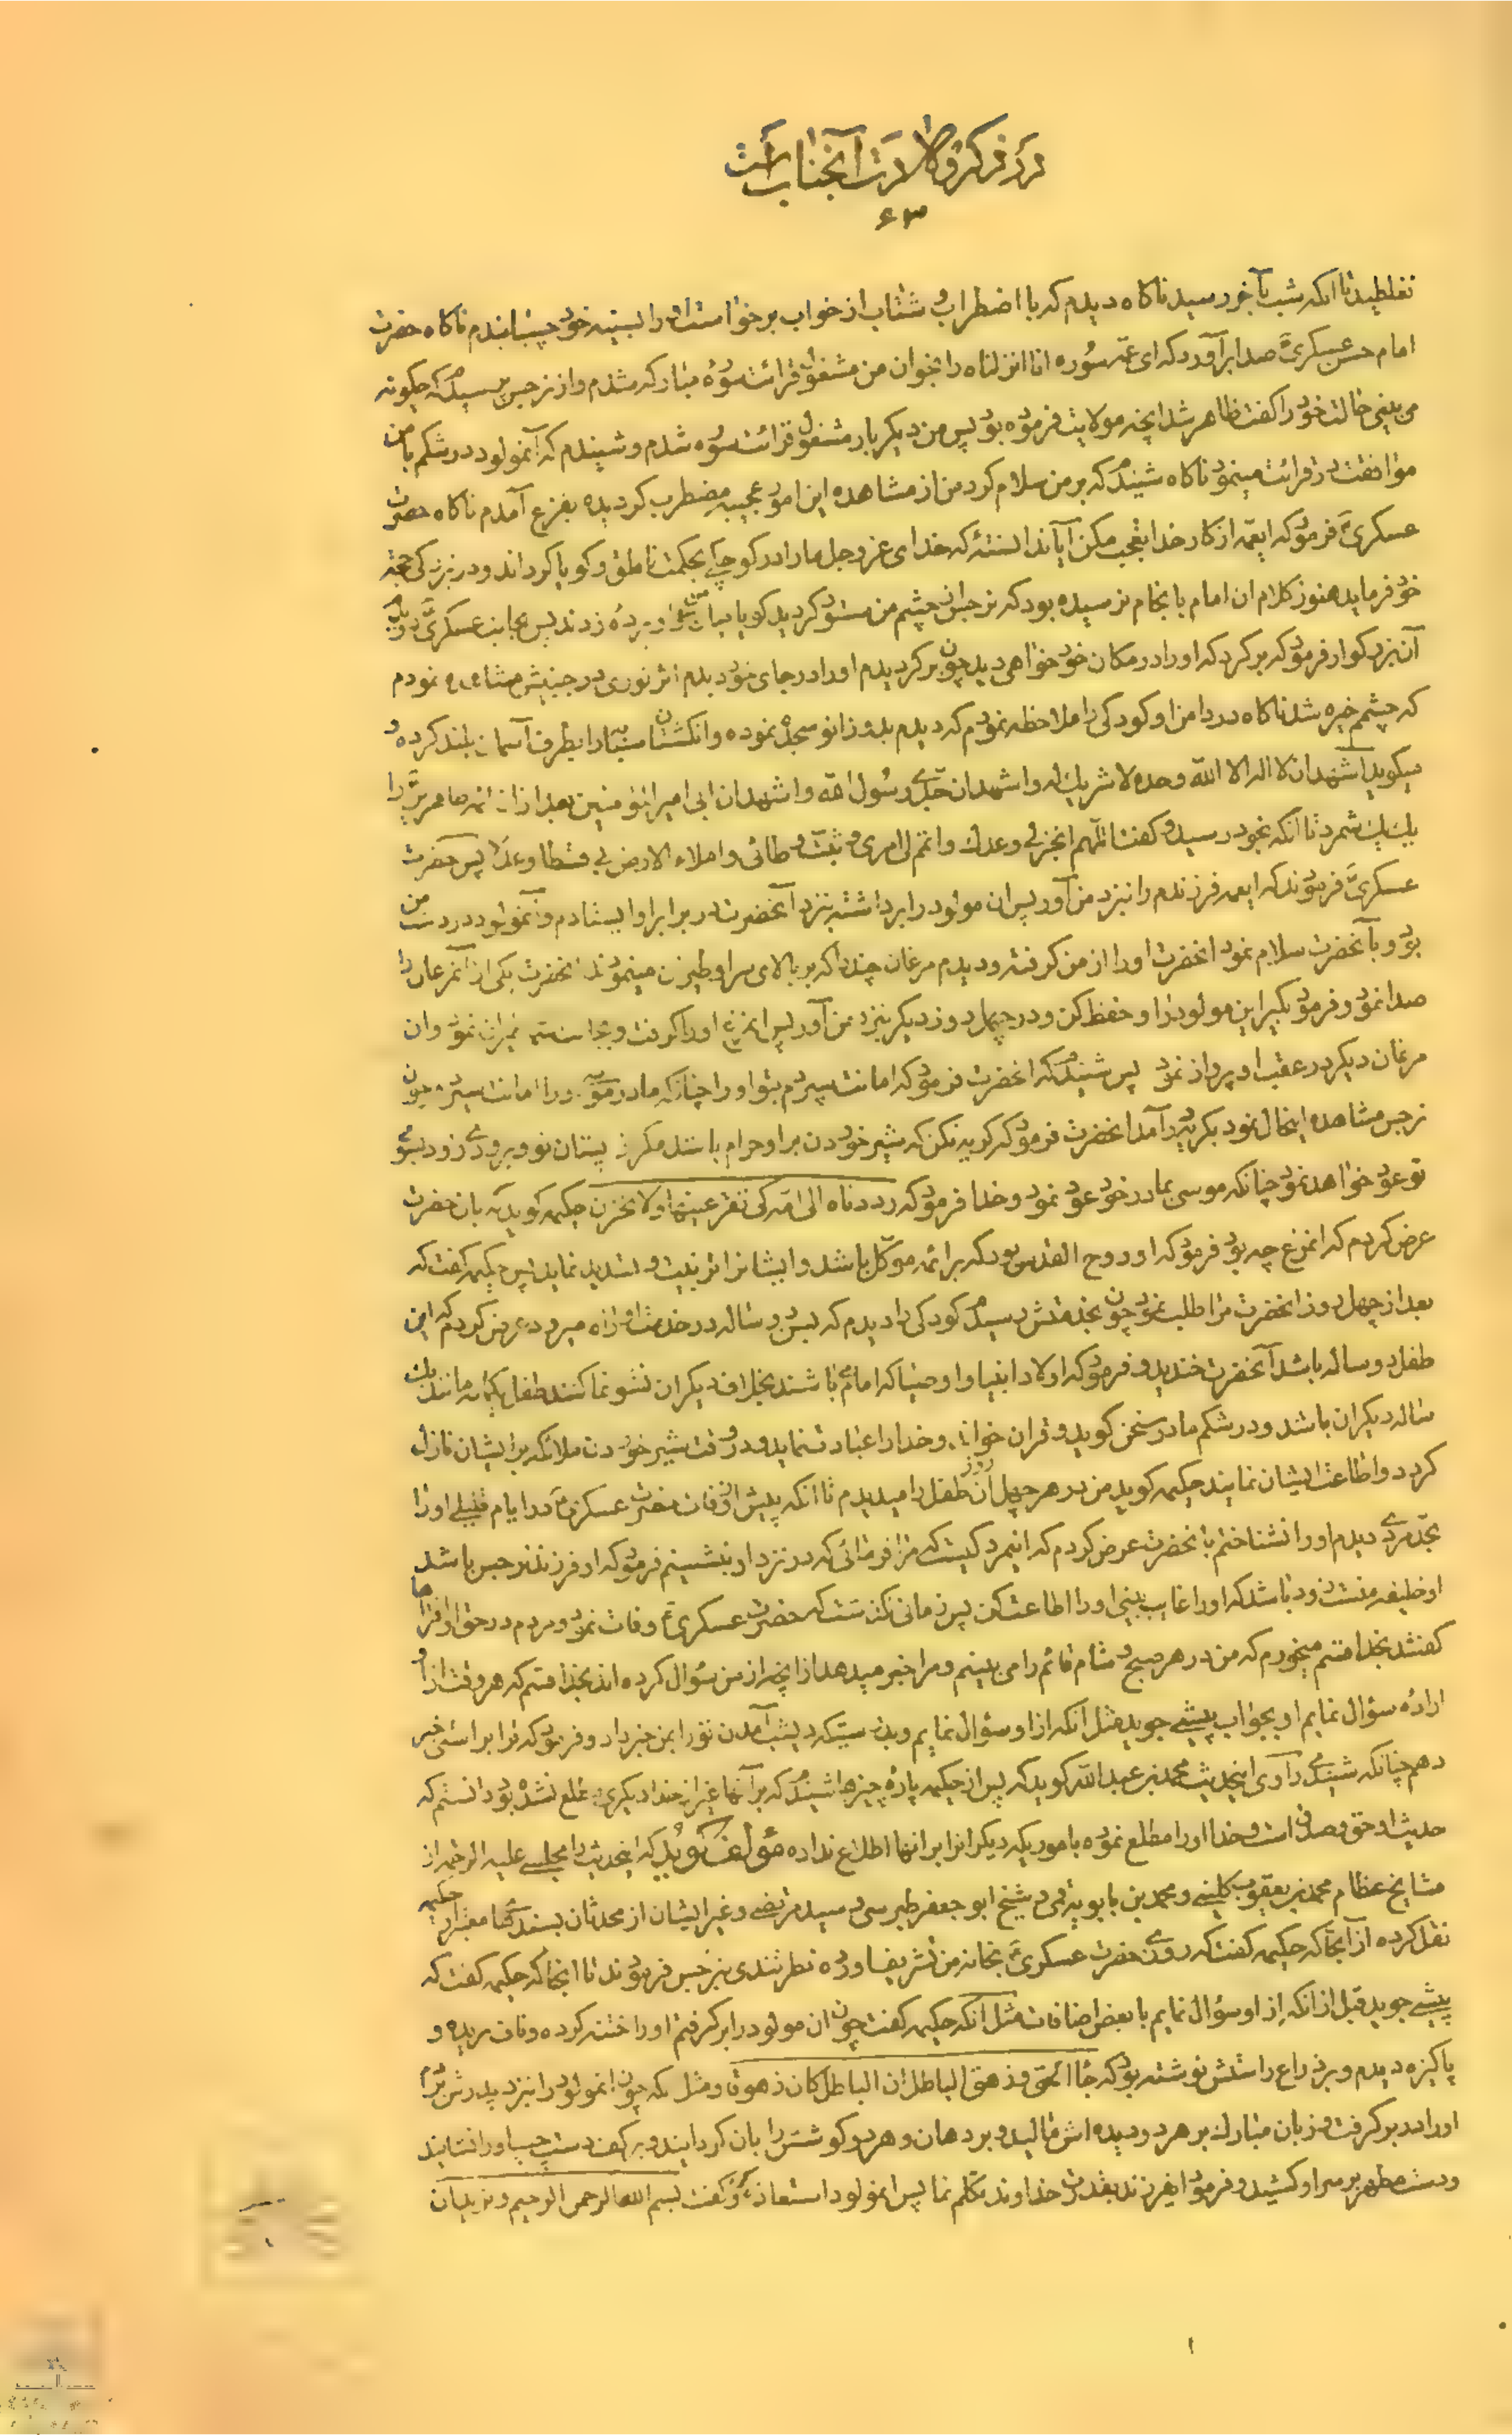 در ذکر ولادت آنجناب است
۶۳
نغلطید تا انکه شب بآخر رسید ناکاه دیدم که با اضطراب و شتاب از خواب برخواست او را بسینه خود چسبانیدم ناکاه حضرت
امام حسن عسکریؑ صدا برآورد که ای عمّه سُوره انا انزلناه را بخوان من مشغول قرائت سوُره مبارکه شدم و از نرجس پرسیدم که چکونه
می بینی حالت خود را کفت ظاهر شد انچه مولایت فرموده بود پس من دیکر بار مشغول قرائت سوره شدم و شنیدم که آنمولود در شکم با من
موافقت در قرائت مینمود ناکاه شنیدم که بر من سلام کرد من از مشاهده این امور عجیبه مضطرب کردیده بفزع آمدم ناکاه حضرت
عسکریؑ فرمود که ایعمّه از کار خدا تعجب مکن آیا ندانستهٔ که خدای عز و جل ما را در کوچکی بحکمت ناطق و کویا کرداند و در بزرکی حجة
خود فرماید هنوز کلام ان امام بانجام نرسیده بود که نرجس از چشم من مستور کردید کویا میان من و او پردهٔ زدند پس بجانب عسکریؑ دویدم
آن بزرکوار فرمود که برکرد که او را در مکان خود خواهی دید چون برکردیدم او را در جای خود دیدم اثر نوری در جبینش مشاهده نمودم
که چشمم خیره شد ناکاه در دامن او کودکی را ملاحظه نمودم که دیدم بدو زانو سجده نموده و انکشتان سبّابه را بطرف آسمان بلند کرده و
میکوید اشهد ان لا اله الا الله وحده لا شریك له و اشهد ان جدّی رسُول الله و اشهد ان ابی امیرالمؤمنین بعد از ان ائمه طاهرینؑ را
یك یك شمرد تا انکه بخود رسید و کفت اللّهم انجز لی وعدك و اتمم لی امری و ثبّت وطائی و املاء الارض بی قسطا و عدلا پس حضرت
عسکریؑ فرمودند که ایعمه فرزندم را نبزد من آور پس ان مولود را برداشته بنزد آنحضرت در برابر او ایستادم و آنمولود در دست من
بود و بآنحضرت سلام نمود انحضرت او را از من کرفته و دیدم مرغان چند را که بر بالای سر او طیران مینمودند انحضرت یکی از آنمرغان را
صدا نمود و فرمود بکیر این مولود را و حفظ کن و در چهل روز دیکر بنزد من آور پس انمرغ او را کرفت و بجانب سماء طیران نمود و ان
مرغان دیکر در عقب او پرواز نمود پس شنیدم که انحضرت فرمود که امانت سپردم بتو او را چنانکه مادر موسی او را امانت سپرد چون
نرجس مشاهده اینحال نمود بکریه درآمد انحضرت فرمود که کریه نکن که شیر خوردن بر او حرام باشد مکر از پستان تو و بزودی زود بسوی
تو عود خواهد نمود چنانکه موسی بمادر خود عود نمود و خدا فرمود که رددناه الی امّه کی تقر عینها و لا تحزن حکیمه کوید که بان حضرت
عرض کردم که انمرغ چه بود فرمود که او روح القدس بود که بر ائمه موکّل باشد و ایشانرا تربیت و تسدید نماید پس حکیمه کفت که
بعد از چهل روز انحضرت مرا طلب نمود چون بخدمتش رسیدم کودکی را دیدم که بسن دو ساله در خدمت او راه میرود عرض کردم که این
طفل دو ساله باشد آنحضرت خندید و فرمود که اولاد انبیا و اوصیا که امام باشند بخلاف دیکران نشو نما کنند طفل یکماهه مانند یك
ساله دیکران باشد و در شکم مادر سخن کوید و قران خواند و خدا را عبادت نماید و در وقت شیر خوردن ملائکه بر ایشان نازل
کردد و اطاعت ایشان نمایند حکیمه کوید من در هر چهل روز آن طفل را میدیدم تا انکه پیش از وفات حضرت عسکریؑ در ایام قلیلی او را
بحدّ مردی دیدم او را نشناختم بانحضرت عرض کردم که انیمرد کیست که مرا فرمائی که در نزد او بنشینم فرمود که او فرزند نرجس باشد
او خلیفه منست زود باشد که او را غایب بینی او را اطاعت کن پس زمانی نکذشت که حضرت عسکریؑ وفات نمود و مردم در حق او افتراها
کفتند بخدا قسم میخورم که من در هر صبح و شام قائم را می بینم و مرا خبر میدهد از انچه از من سؤال کرده اند بخدا قسم که هر وقت از او
ارادهٔ سؤال نمایم او بجواب پیشی جوید مثل انکه از او سؤال نمایم و بدرستیکه دیشب آمدن تو را بمن خبر داد و فرمود که ترا براستی خبر
دهم چنانکه شنیدی راوی اینحدیث محمد بن عبدالله کوید که پس از حکیمه پارهٔ چیزها شنیدم که بر آنها غیر از خدا دیکری مطلع نشده بود دانستم که
حدیث او حق و صدق است و خدا او را مطلع نموده باموریکه دیکرانرا بر انها اطلاع نداده مؤلف کوید که اینحدیث را مجلسی علیه الرحمه از
مشایخ عظام محمد بن یعقوب کلینی و محمد بن بابویه قمی و شیخ ابو جعفر طبرسی و سید مرتضی و غیر ایشان از محدثان بسند معتبر از حکیمه
نقل کرده از آنجا که حکیمه کفت که روزی حضرت عسکریؑ بخانه من تشریف اورده نظر تندی بنرجس فرمودند تا انجا که حکیمه کفت که
پیشی جوید قبل از انکه از او سؤال نمایم با بعض اضافات مثل آنکه حکیمه کفت چون ان مولود را بر کرفتم او را ختنه کرده و ناف بریده و
پاکیزه دیدم و بر ذراع راستش نوشته بود که جاء الحق و زهق الباطل ان الباطل کان زهوقا و مثل انکه چون انمولود را بنزد پدرش بردم
او را در بر کرفت و زبان مبارك بر هر دو دیده اش مالید و بر دهان و هر دو کوشش زبان کردانید و بر کف دست چپ او را نشانید
و دست مطهر بر سر او کشید و فرمود ایفرزند بقدرت خداوند تکلّم نما پس انمولود استعاذه کرد و کفت بسم الله الرحمن الرحیم و نرید ان